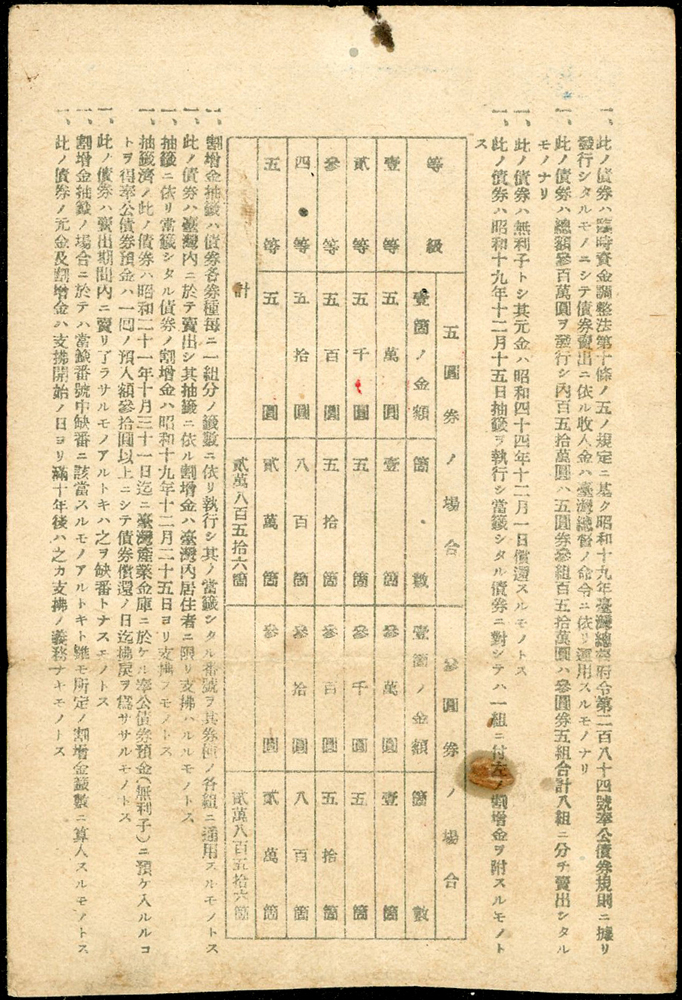 一、此ノ債券ハ臨時資金調整法第十條ノ五ノ規定ニ基ク昭和十九年臺灣總督府令第二百八十四號奉公債券規則ニ據リ
發行シタルモノニシテ債券賣出ニ依ル收入金ハ臺灣總督ノ命令ニ依リ運用スルモノナリ
一、此ノ債券ハ總額參百萬圓ヲ發行シ內百五拾萬圓ハ五圓券參組百五拾萬圓ハ參圓券五組合計八組ニ分チ賣出シタル
モノナリ
一、此ノ債券ハ無利子トシ其元金ハ昭和四十四年十二月一日償還スルモノトス
一、此ノ債券ハ昭和十九年十二月十五日抽籤ヲ執行シ當籤シタル債券ニ對シテハ一組ニ付左ノ割增金ヲ附スルモノト
ス
等級 五圓券ノ場合 參圓券ノ場合
壹箇ノ金額 箇數 壹箇ノ金額 箇數
壹等 五萬圓 壹箇 參萬圓 壹箇
貳等 五千圓 五箇 參千圓 五箇
參等 五百圓 五拾箇 參百圓 五拾箇
四等 五拾圓 八百箇 參拾圓 八百箇
五等 五圓 貳萬箇 參圓 貳萬箇
計 貳萬八百五拾六箇 貳萬八百五拾六箇
一、割增金抽籤ハ債券各券種每ニ一組分ノ籤數ニ依リ執行シ其ノ當籤シタル番號ヲ其券種ノ各組ニ通用スルモノトス
一、此ノ債券ハ臺灣內ニ於テ賣出シ其抽籤ニ依ル割增金ハ臺灣內居住者ニ限リ支拂ハルルモノトス
一、抽籤ニ依リ當籤シタル債券ノ割增金ハ昭和十九年十二月二十五日ヨリ支拂フモノトス
一、抽籤濟ノ此ノ債券ハ昭和二十一年十月三十一日迄ニ臺灣產業金庫ニ於ケル奉公債券預金(無利子)ニ預ケ入ルルコ
トヲ得奉公債券預金ハ一回ノ預入額參拾圓以上ニシテ債券償還ノ日迄拂戾ヲ爲ササルモノトス
一、此ノ債券ハ賣出期間內ニ賣リ了ラサルモノアルトキハ之ヲ缺番トナスモノトス
一、割增金抽籤ノ場合ニ於テハ當籤番號中缺番ニ該當スルモノアルトキト雖モ所定ノ割增金籤數ニ算入スルモノトス
一、此ノ債券ノ元金及割增金ハ支拂開始ノ日ヨリ滿十年後ハ之カ支拂ノ義務ナキモノトス